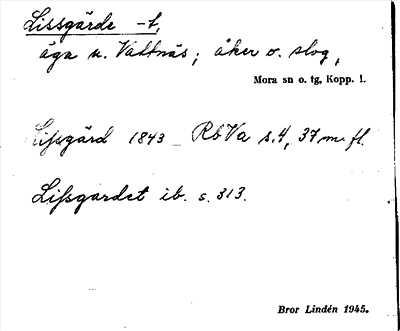 Lissgärde -t,
äga n. Vattnäs; åker o. slog,
Mora sn o. tg, Kopp. l.
Lifsgärd 1843 _ RbVa s.4, 37 m. fl.
Lifsgardet ib. s. 313.
Bror Lindén 1945.